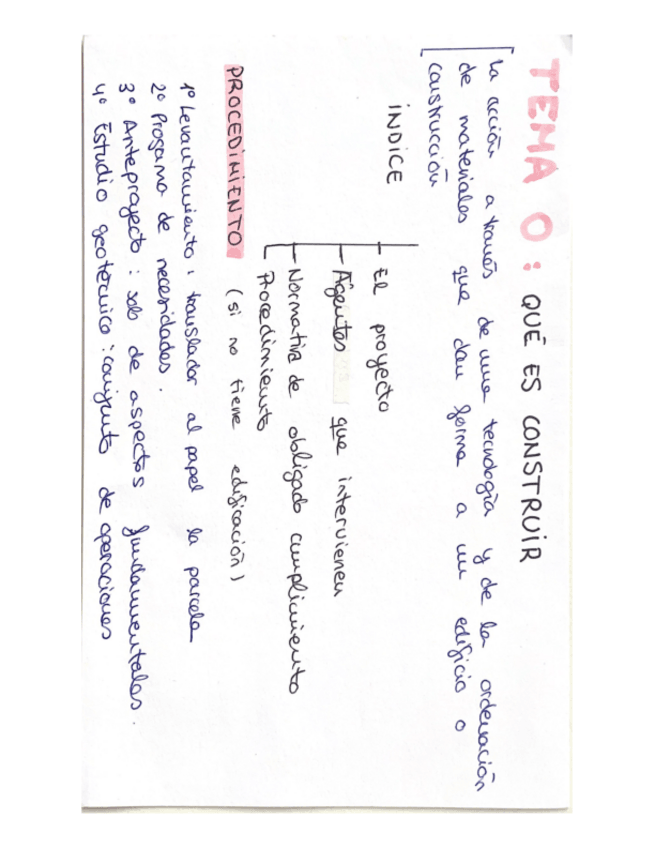 TEMA 0: QUÉ ES CONSTRUIR
la acción a través de una tecnología y de la ordenación
de materiales que dan forma a un edificio o
construcción
ÍNDICE
El proyecto
Agentes que intervienen
Normativa de obligado cumplimiento
Procedimiento
PROCEDIMIENTO (si no tiene edificación)
1º Levantamiento: translador al papel la parcela
2º Programa de necesidades.
3º Anteproyecto: solo de aspectos fundamentales.
4º Estudio geotécnico: conjunto de operaciones